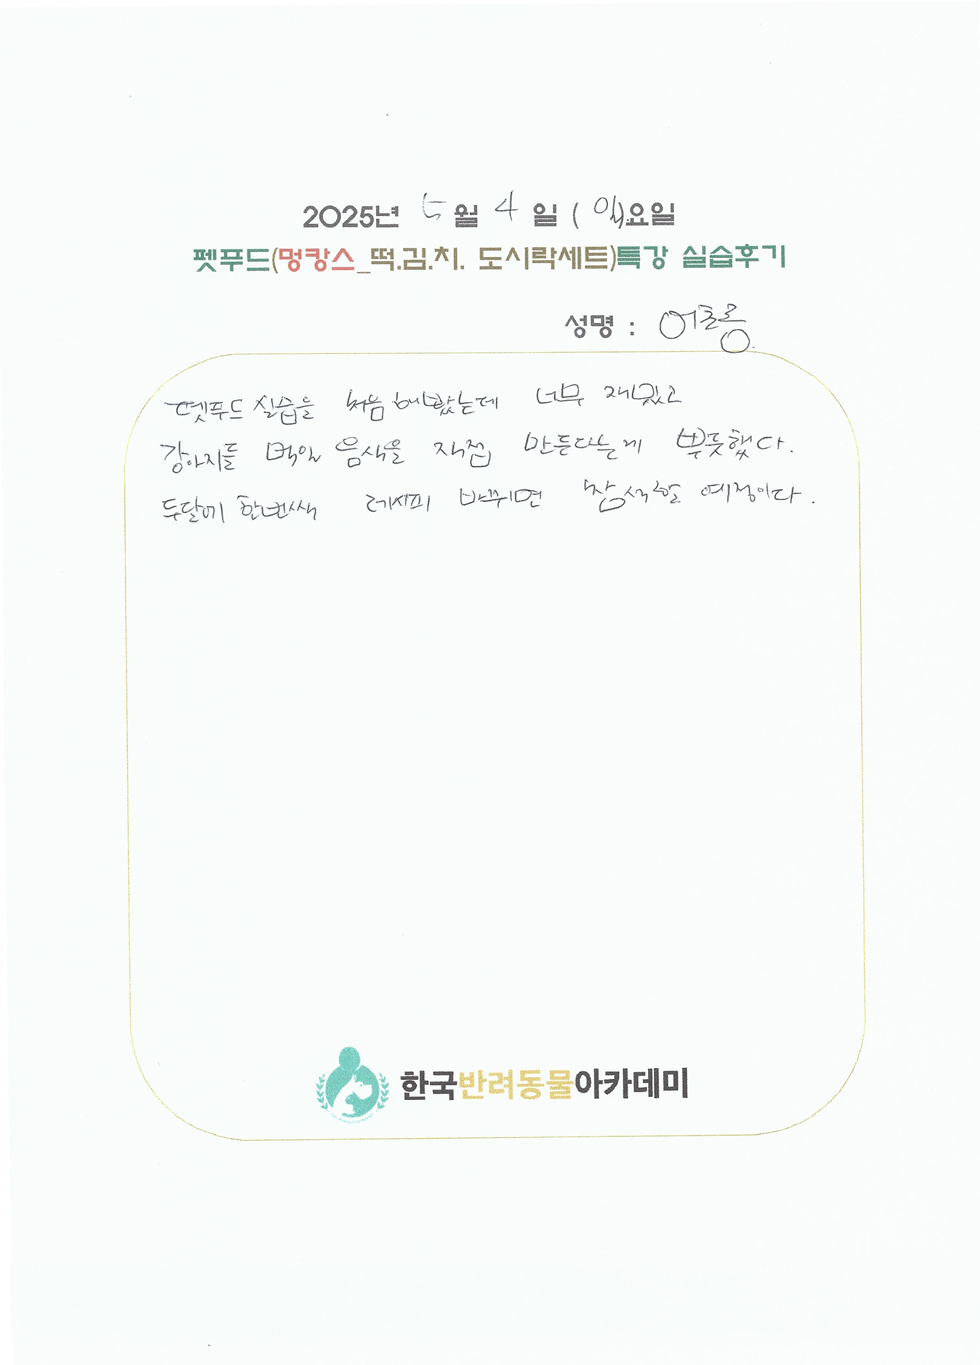 2025년 5월 4일 (일)요일
펫푸드(멍캉스_떡.김.치. 도시락세트)특강 실습후기
성명 : 어초롱
펫푸드 실습을 처음 해봤는데 너무 재밌고
강아지들 먹일 음식을 직접 만든다는게 뿌듯했다.
두달에 한번씩 레시피 바뀌면 참석할 예정이다.
한국반려동물아카데미